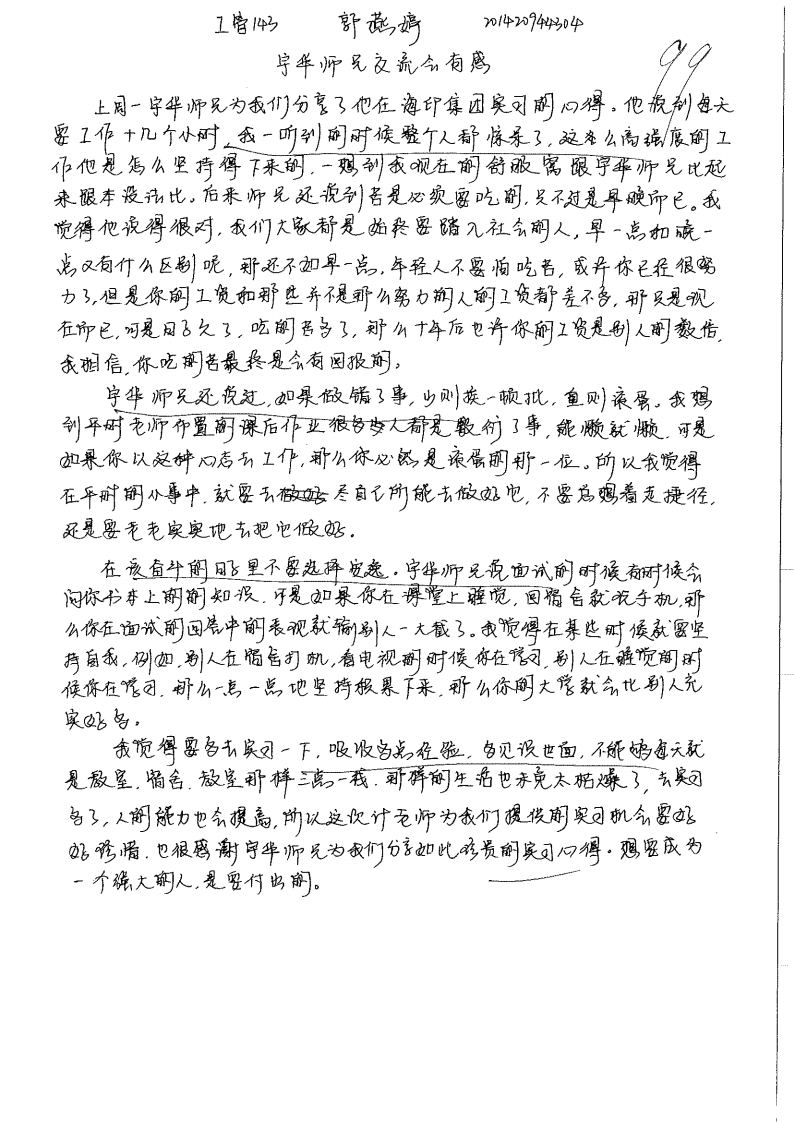 工管143 郭燕婷 201420944304
99
宇华师兄交流会有感
上周一宇华师兄为我们分享了他在海印集团实习的心得。他说到每天
要工作十几个小时,我一听到的时候整个人都惊呆了,这么高强度的工
作他是怎么坚持得下来的,一想到我现在的舒服窝跟宇华师兄比起
来跟本没法比。后来师兄还说到苦是必须要吃的,只不过是早晚而已。我
觉得他说得很对,我们大家都是始终要踏入社会的人,早一点和晚一
点又有什么区别呢,那还不如早一点,年轻人不要怕吃苦,或许你已经很努
力了,但是你的工资和那些并不是那么努力的人的工资都差不多,那只是现
在而已,可是日子久了,吃的苦多了,那么十年后也许你的工资是别人的数倍,
我相信,你吃的苦最终是会有回报的。
宇华师兄还说过,如果做错了事,少则挨一顿批,重则滚蛋。我想
到平时老师布置的课后作业很多人都是敷衍了事,能懒就懒,可是
如果你以这种心态去工作,那么你必然是滚蛋的那一位。所以我觉得
在平时的小事中,就要去尽自己所能去做好它,不要总想着走捷径,
还是要老老实实地去把它做好。
在该奋斗的日子里不要选择安逸。宇华师兄说面试的时候有时候会
问你书本上的的知识,可是如果你在课堂上睡觉,回宿舍就玩手机,那
么你在面试的回答中的表现就输别人一大截了。我觉得在某些时候就要坚
持自我,例如,别人在宿舍打机,看电视的时候你在学习,别人在睡觉的时
候你在学习,那么一点一点地坚持积累下来,那么你的大学就会比别人充
实好多。
我觉得要多去实习一下,吸收多点经验,多见识世面,不能够每天就
是教室,宿舍,教室那样三点一线,那样的生活也未免太枯燥了,去实习
多了,人的能力也会提高,所以这次计老师为我们提供的实习机会要好
好珍惜,也很感谢宇华师兄为我们分享如此珍贵的实习心得。想要成为
一个强大的人,是要付出的。